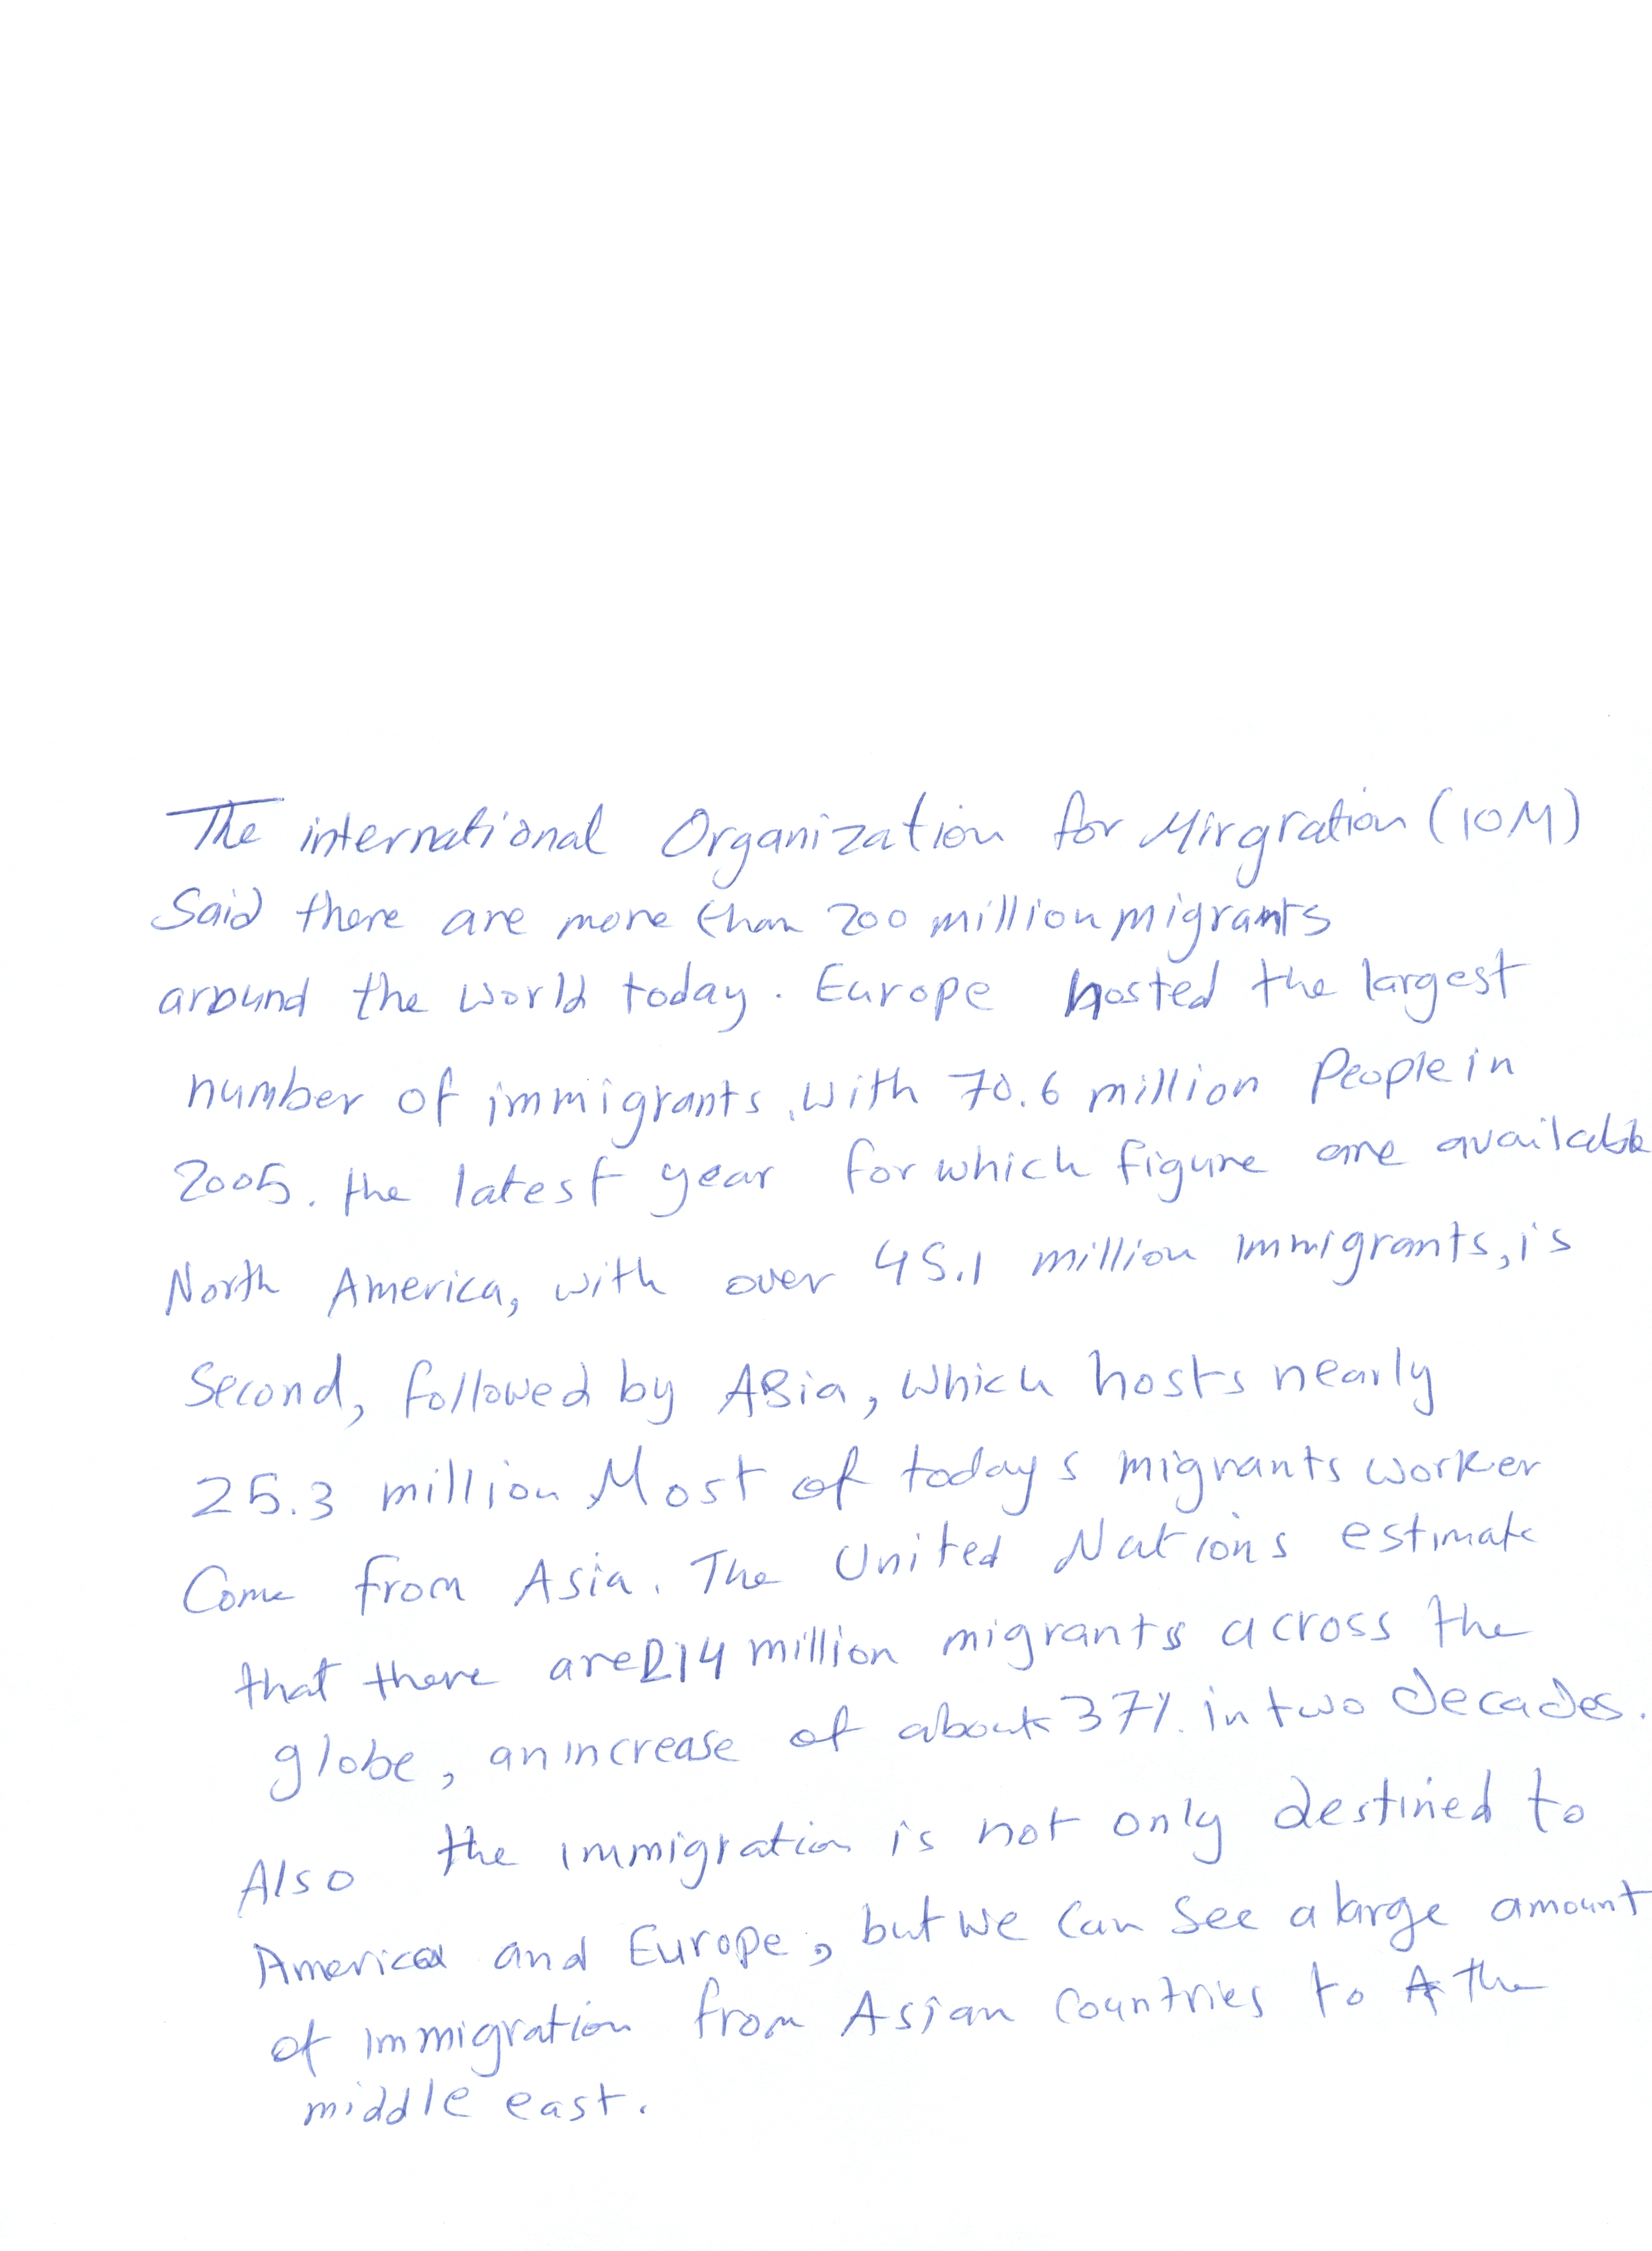 The international Organization for Mirgration (IOM)
Said there are more than 200 million migrants
around the world today. Europe hosted the largest
number of immigrants, with 70.6 million People in
2005. the latest year for which figure are available
North America, with over 45.1 million immigrants, is
Second, followed by Asia, which hosts nearly
25.3 million Most of todays migrants worker
Come from Asia. The United Nations estimate
that there are 214 million migrants across the
globe, an increase of about 37% in two decades.
Also the immigration is not only destined to
America and Europe, but we can see a large amount
of immigration from Asian Countries to the
middle east.